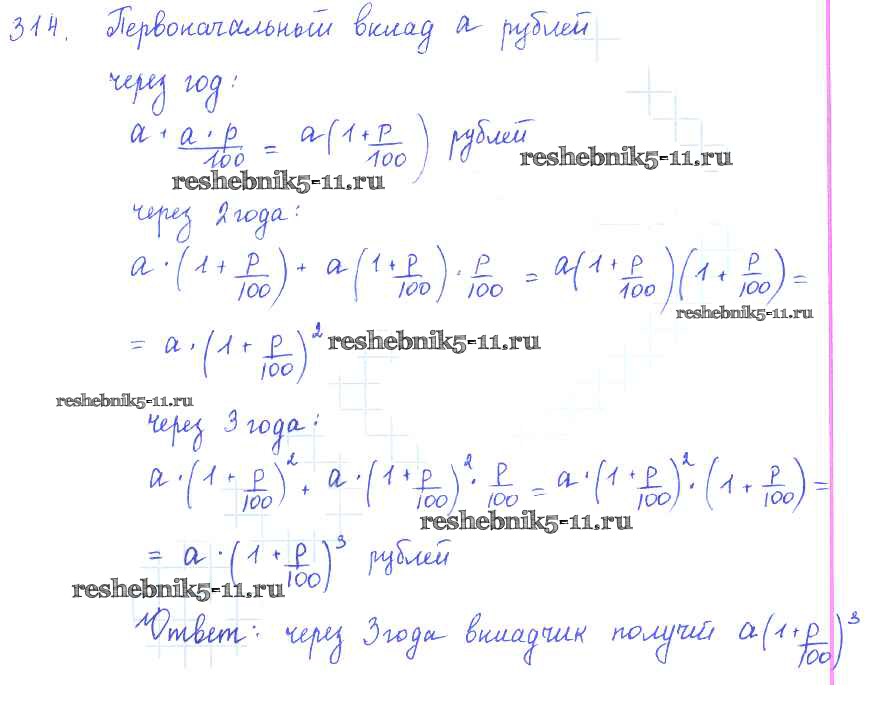 314. Первоначальный вклад a рублей
через год:
a + a · p/100 = a(1+p/100) рублей
reshebnik5-11.ru
reshebnik5-11.ru
через 2 года:
a · (1 + p/100) + a (1+p/100) · p/100 = a(1+p/100)(1+p/100) =
reshebnik5-11.ru
= a · (1 + p/100)² reshebnik5-11.ru
reshebnik5-11.ru
через 3 года:
a · (1 + p/100)² + a · (1+p/100)² · p/100 = a · (1+p/100)² · (1+p/100) =
reshebnik5-11.ru
= a · (1 + p/100)³ рублей
reshebnik5-11.ru
Ответ: через 3 года вкладчик получит a(1+p/100)³